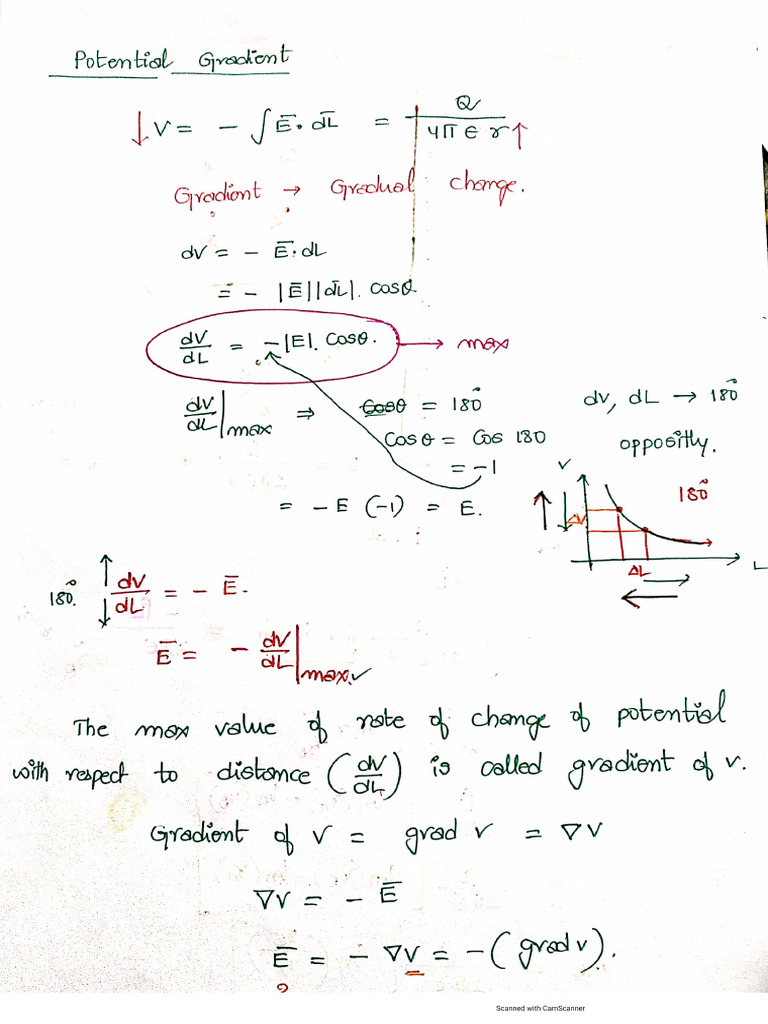 Potential Gradient
↓V = - ∫ E̅ . dL̅ = Q / 4π ∈ r ↑
Gradient → Gradual change.
dV = - E̅ . dL
= - |E̅| |dL̅| . cosθ
dV/dL = - |E| . Cosθ . → max
dV/dL | max ⇒ Cosθ = 180°
Cosθ = Cos 180
= -1
= - E (-1) = E.
dv, dL → 180°
oppositly.
V
180°
ΔV
L
ΔL
180° ↑↓ dV/dL = - E̅ .
E̅ = - dV/dL | max ✓
The max value of rate of change of potential
with respect to distance (dV/dL) is called gradient of v.
Gradient of V = grad v = ∇V
∇V = - E̅
E̅ = - ∇V = - (grad v).
?
Scanned with CamScanner